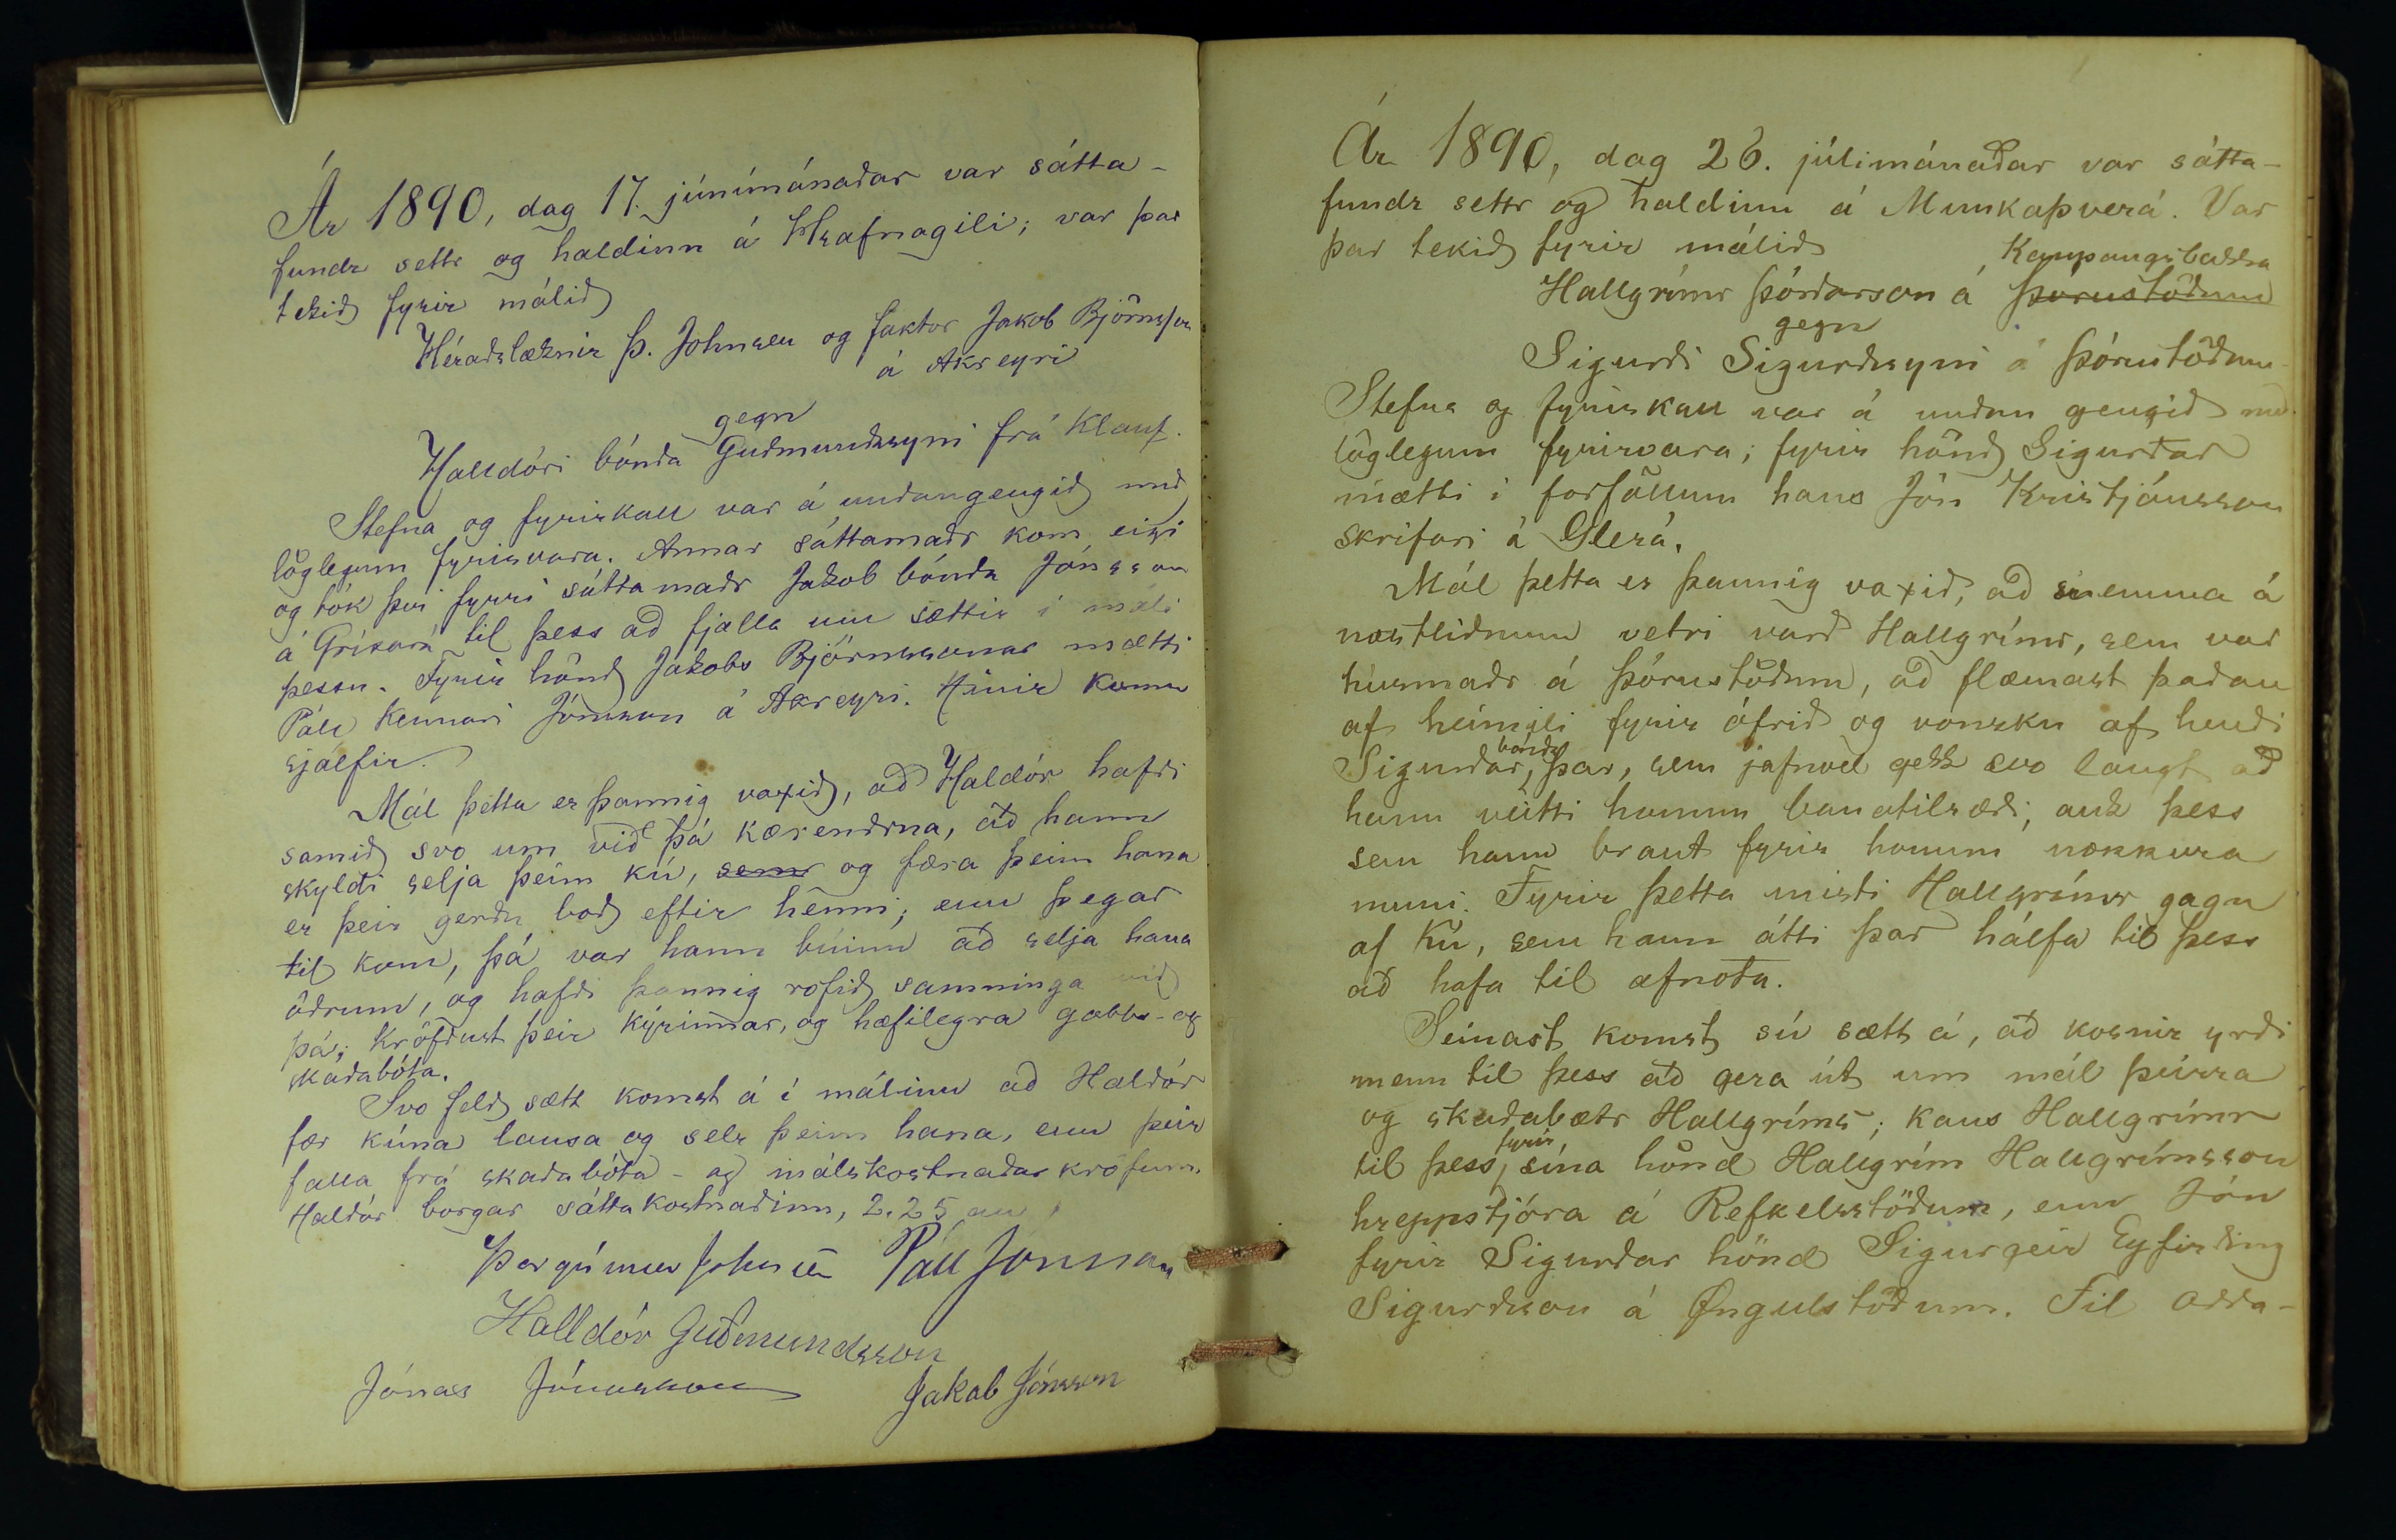 Ár 1890, dag 17. júnímánaðar var sátta-
fundr settr og haldinn á Hrafnagili; var þar
tekið fyrir málið
Héraðslæknir Þ. Johnsen og faktor Jakob Björnsson
á Akreyri
gegn
Halldóri bónda Guðmundssyni frá Klauf.
Stefna og fyrirkall var á undangengið með
löglegum fyrirvara. Annar sáttamaðr kom eigi
og tók því fyrri sáttamaðr Jakob bónda Jónsson
á Grísará til þess að fjalla um sættir í máli
þessu. Fyrir hönd Jakobs Björnssonar mætti
Páll kennari Jónsson á Akreyri. Hinir komu
sjálfir.
Mál þetta er þannig vaxið, að Haldór hafði
samið svo um við þá kærendrna, að hann
skyldi selja þeim kú, sem og færa þeim hana
er þeir gerðu boð eftir henni; enn þegar
til kom, þá var hann búinn að selja hana
öðrum, og hafði þannig rofið samninga við
þá; kröfðust þeir kýrinnar, og hæfilegra gabbs- og
skaðabóta.
Svo feld sætt komst á í málinu að Haldór
fær kúna lausa og selr þeim hana, enn þeir
falla frá skaðabóta- og málskostnaðar kröfum.
Haldór borgar sáttakostnaðinn, 2.25 au
Þorgrímur Johnsen Páll Jónsson
Halldór Guðmundsson
Jónas Jónasson Jakob Jónsson
Ár 1890, dag 26. júlímánaðar var sátta-
fundr settr og haldinn á Munkaþverá. Var
þar tekið fyrir málið
Kaupangsbakka
Hallgrímr Þórðarson á Þorustöðum
gegn
Sigurði Sigurðssyni á Þórustöðum.
Stefna og fyrirkall var á undan gengið með
löglegum fyrirvara; fyrir hönd Sigurðar
mætti í forföllum hans Jón Kristjánsson
skrifari á Glerá.
Mál þetta er þannig vaxið, að snemma á
næstliðnum vetri varð Hallgrímr, sem var
húsmaðr á Þórustöðum, að flæmast þaðan
af heimili fyrir ófrið og vonsku af hendi
Sigurðar, bónda þar, sem jafnvel gekk svo langt að
hann veitti honum banatilræði; auk þess
sem hann braut fyrir honum nokkura
muni. Fyrir þetta misti Hallgrímr gagn
af kú, sem hann átti þar hálfa til þess
að hafa til afnota.
Seinast komst sú sætt á, að kosnir yrði
menn til þess að gera út um mál þeirra
og skaðabætr Hallgríms; kaus Hallgrímr
til þess, fyrir sína hönd Hallgrím Hallgrímsson
hreppstjóra á Refkelsstöðum, enn Jón
fyrir Sigurðar hönd Sigurgeir Eyfirðing
Sigurðsson á Øngulstöðum. Til odda-